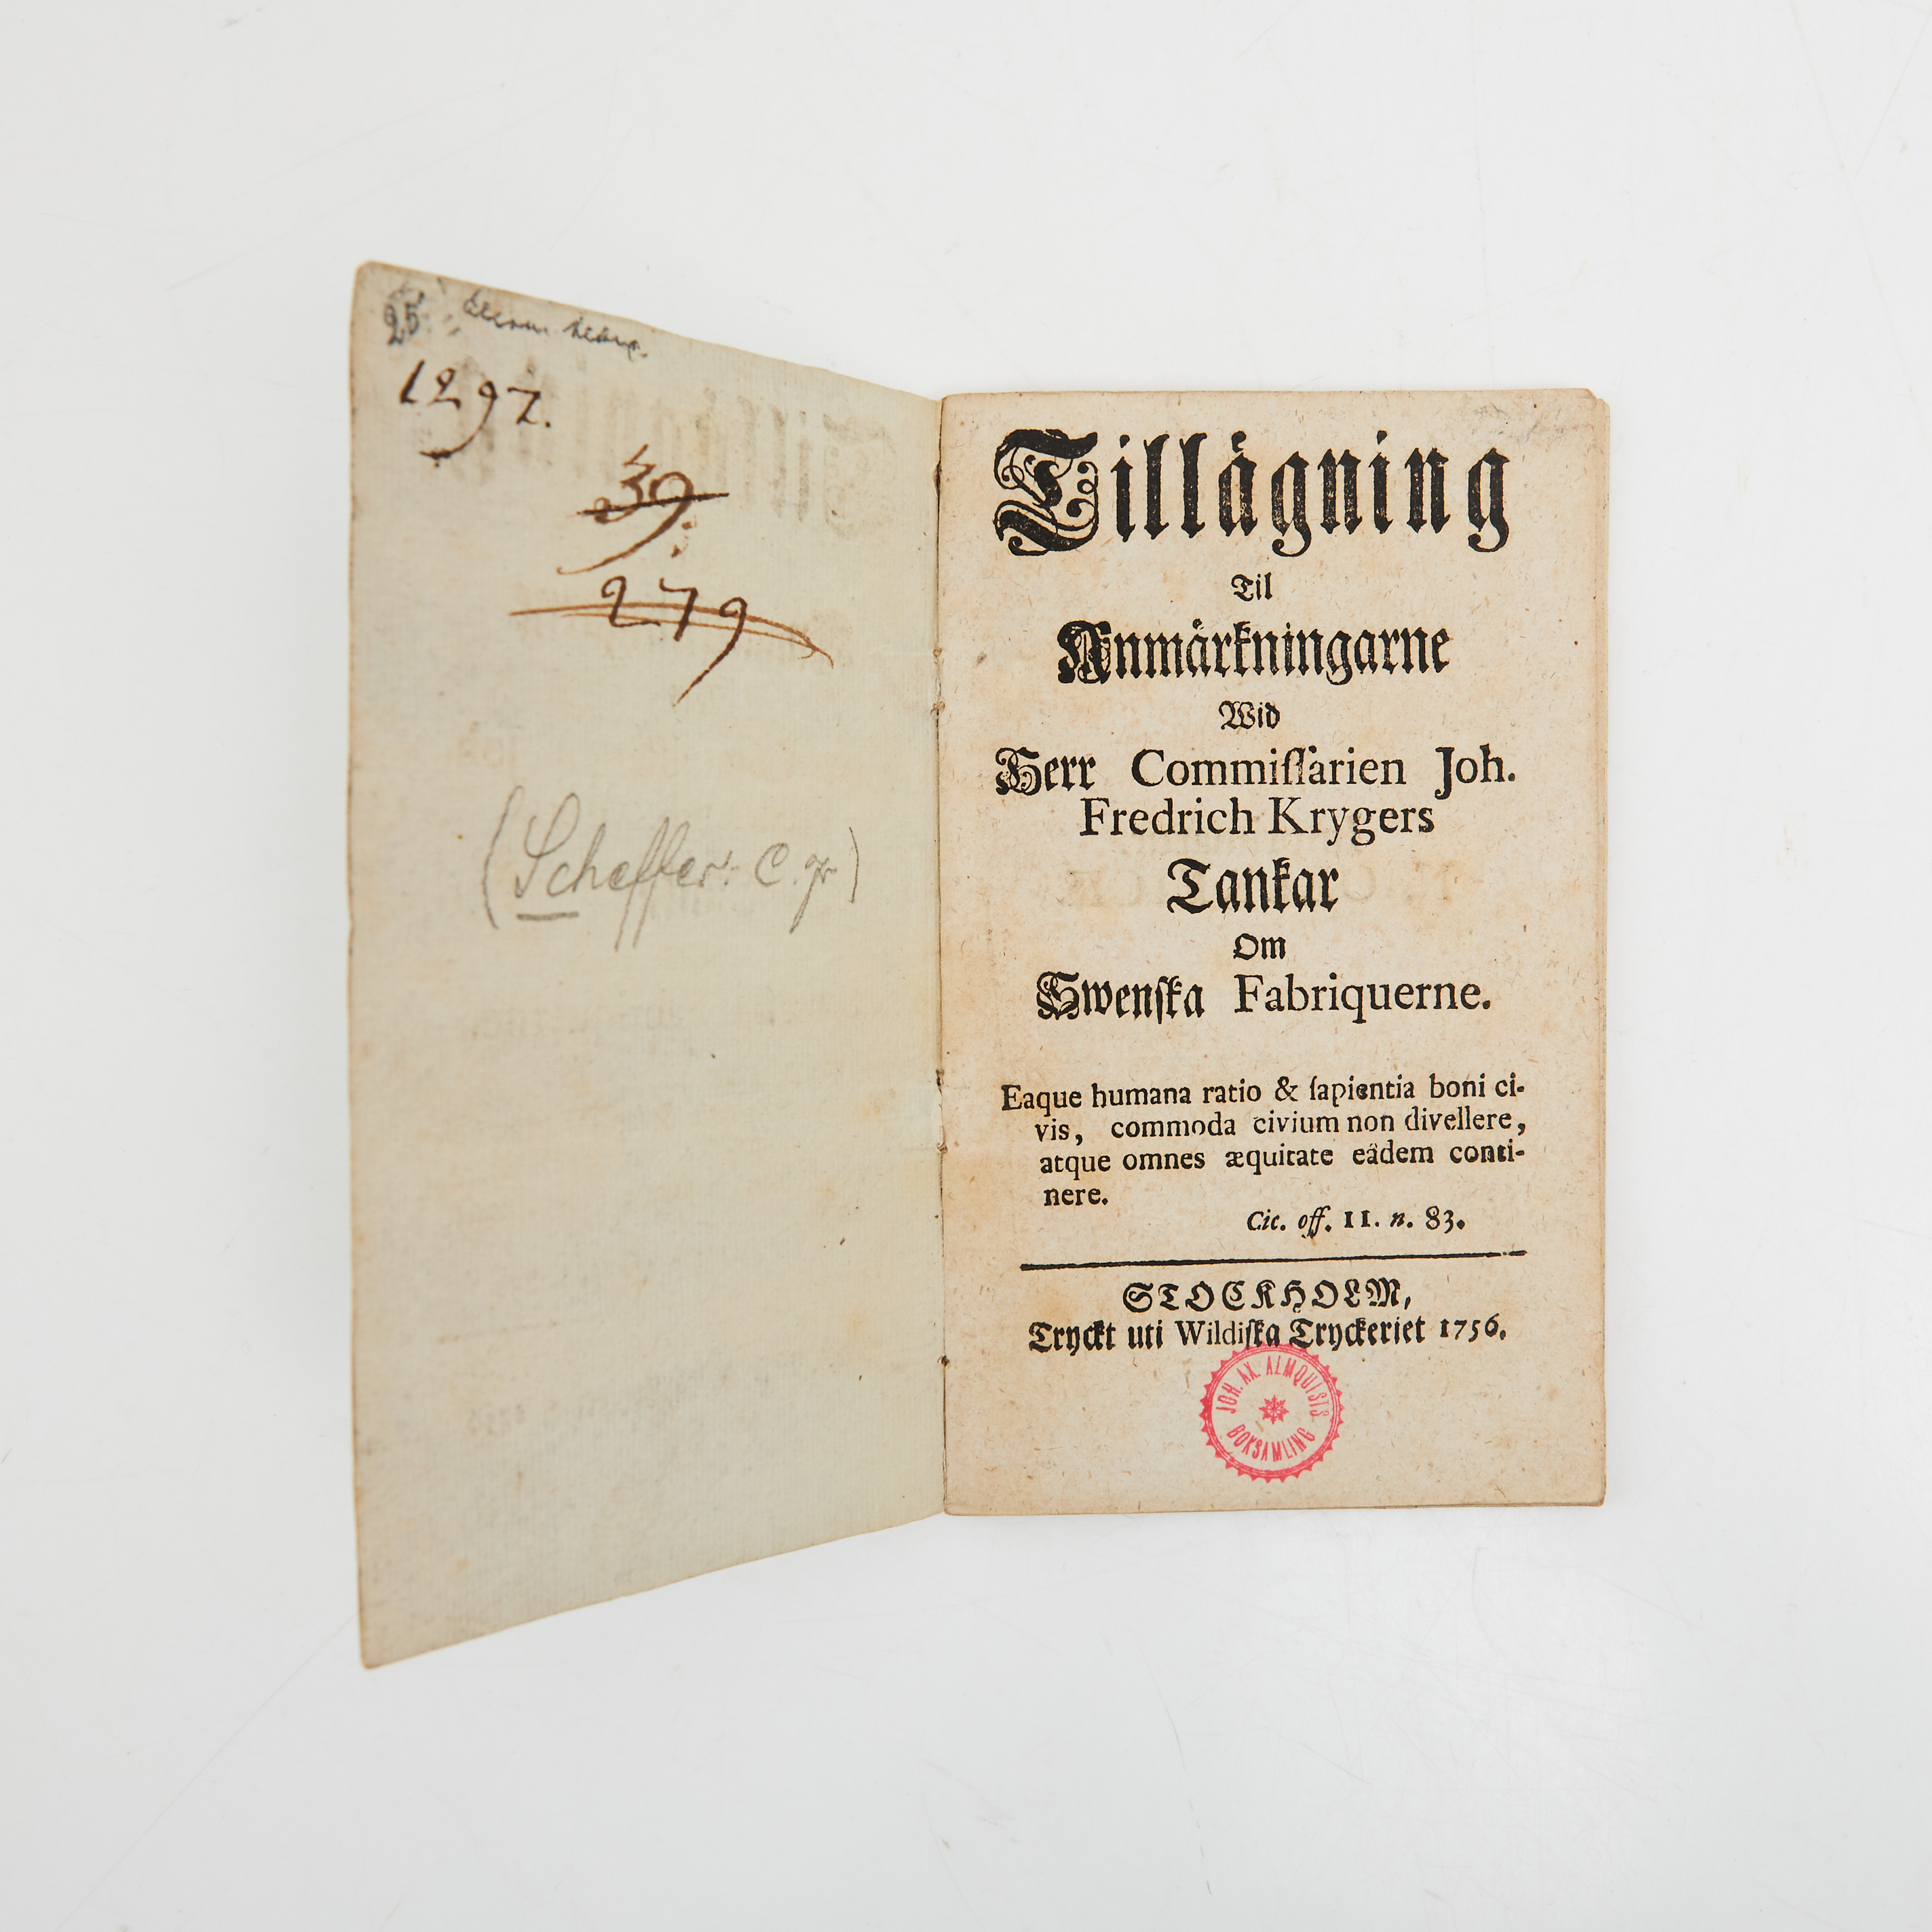 25
1297.
39.
279
(Scheffer: C. gr)
Tillägning
Til
Anmärkningarne
Wid
Herr Commiſſarien Joh.
Fredrich Krygers
Tankar
Om
Swenſka Fabriquerne.
Eaque humana ratio & ſapientia boni ci-
vis, commoda civium non divellere,
atque omnes æquitate eâdem conti-
nere.
Cic. off. II. n. 83.
STOCKHOLM,
Tryckt uti Wildiſka Tryckeriet 1756.
JOH. AX. ALMQUISTS
BOKSAMLING